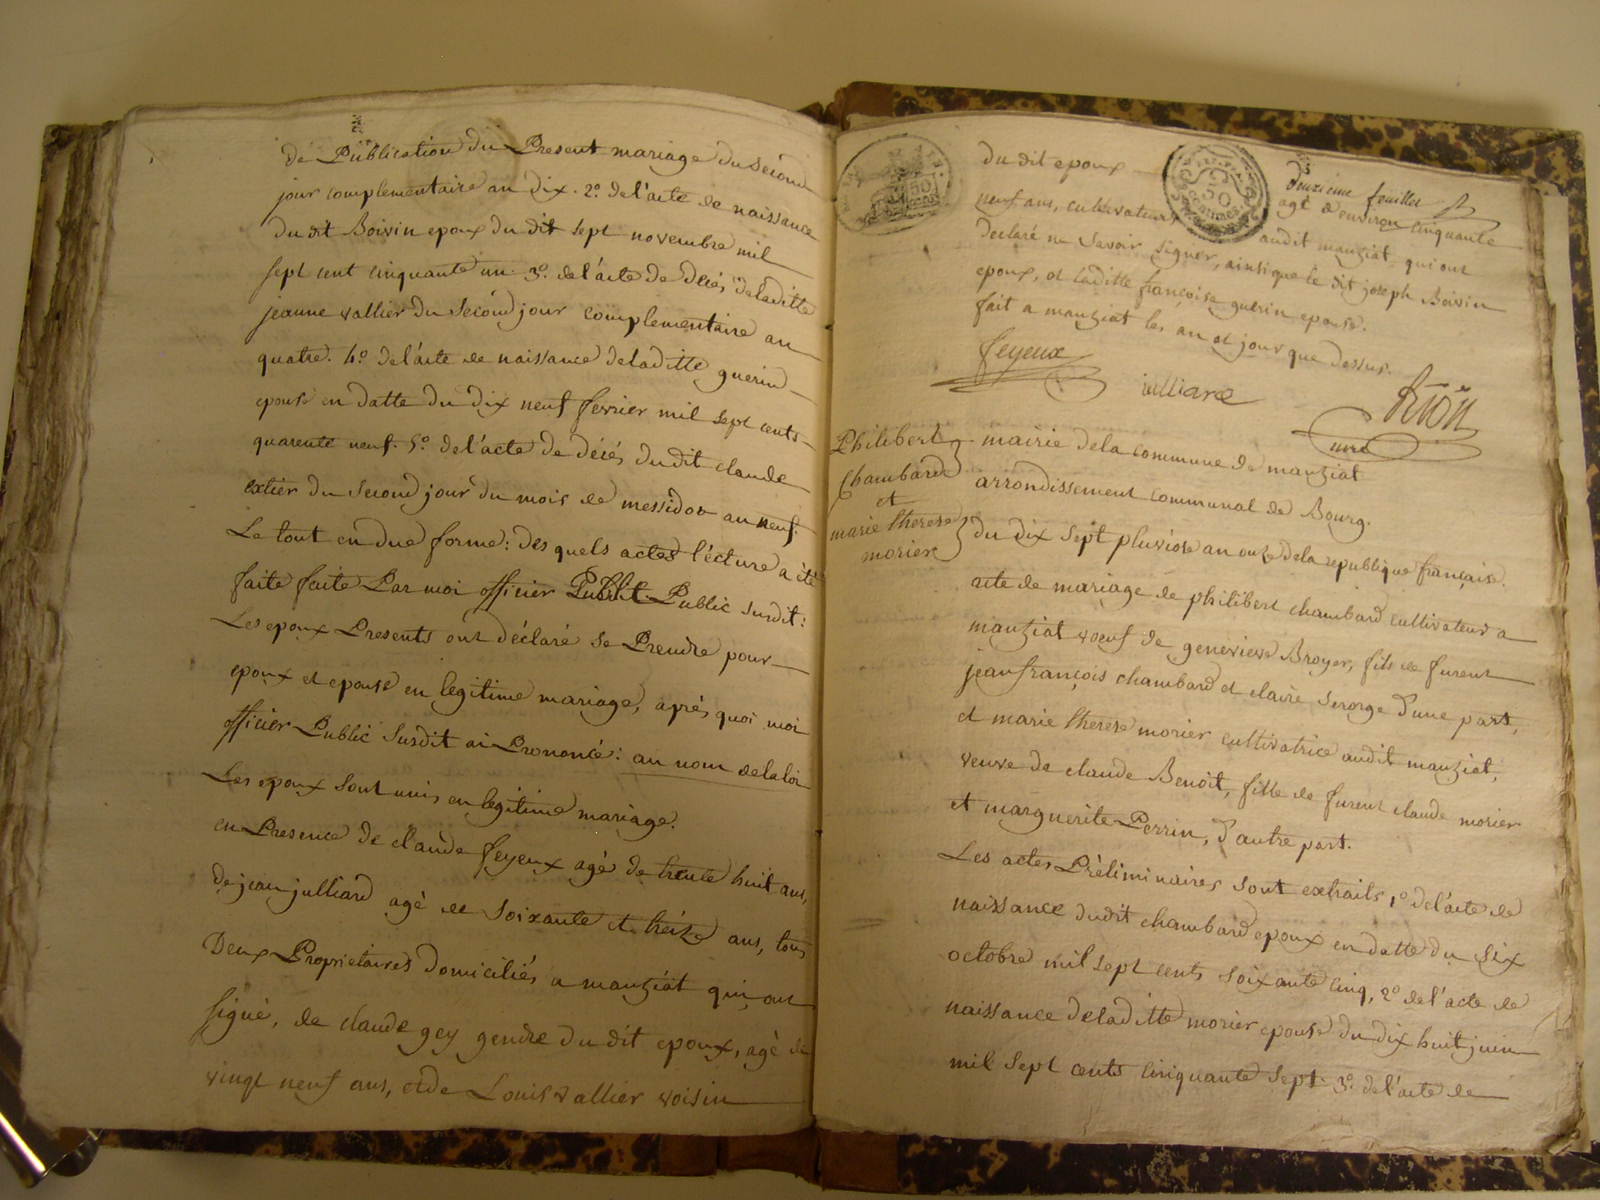 de Publication du Present mariage du Second
jour complementaire an dix. 2.º de l'acte de naissance
du dit Boivin epoux du dit sept novembre mil
sept cent cinquante un. 3.º de l'acte de décés deladitte
jeanne vallier du Second jour complementaire an
quatre. 4.º de l'acte de naissance deladitte guerin
epouse en datte du dix neuf fevrier mil sept cents
quarente neuf. 5.º de l'acte de décés dudit claude
extier du second jour du mois de messidor an neuf.
Le tout en due forme: des quels actes lécture a été
faite faite Par moi officier Public Public susdit:
Les epoux Presents ont déclaré se Prendre pour
epoux et epouse en legitime mariage, aprés quoi moi
officier Public susdit ai Prononcé: au nom delaloi
Les epoux sont unis en legitime mariage.
en Presence de claude feyeux agé de trente huit ans,
de jean julliard agé de soixante et tréize ans, tous
Deux Proprietaires domiciliés a manziat qui ont
signé, de claude gey gendre du dit epoux, agé de
vingt neuf ans, et de Louis vallier voisin
du dit epoux
50
50
CENTIMES
Deuxieme feuillet
agé d'environ cinquante
neuf ans, cultivateurs audit manziat qui ont
declaré ne savoir signer, ainsi que le dit joseph Boivin
epoux, et laditte françoise guerin epouse.
fait a manziat les an et jour que dessus.
feyeux
julliard
mre
Philibert
chambard
et
marie therese
morier
mairie dela commune de manziat
arrondissement communal de Bourg.
du dix sept pluviose an onze dela republique française.
acte de mariage de philibert chambard cultivateur a
manziat voeuf de genevieve Broyer, fils de furent
jean françois chambard et claire serorge d'une part,
et marie therese morier cultivatrice audit manziat,
veuve de claude Benoit, fille de furent claude morier
et marguerite Perrin, d'autre part.
Les actes Préliminaires sont extraits 1º de l'acte de
naissance dudit chambard epoux en datte du six
octobre mil sept cents soixante cinq, 2º de l'acte de
naissance deladitte morier epouse du dix huit juin
mil sept cents cinquante sept. 3º. de l'acte de